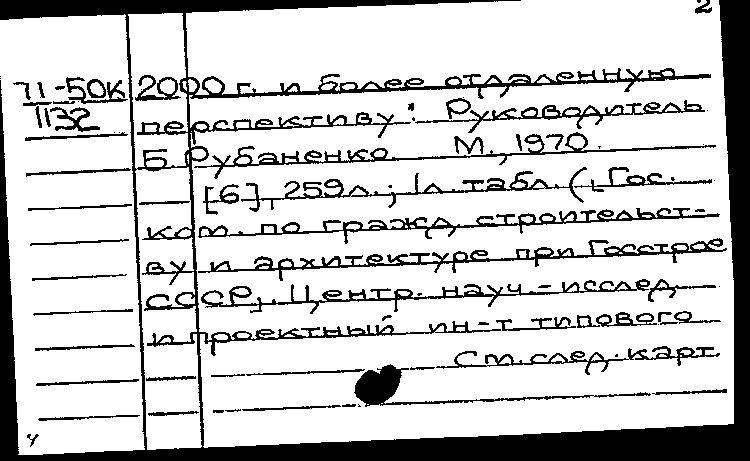 2
71-50К 2000 г. и более отдаленную
1132 перспективу: Руководитель
Б. Рубаненко. М., 1970.
[6], 259л.; 1л. табл. (˪Гос.
ком. по гражд. строительст-
ву и архитектуре при Госстрое
СССР˩. Центр. науч.-исслед.
и проектный ин-т типового
См. след. карт.
ч